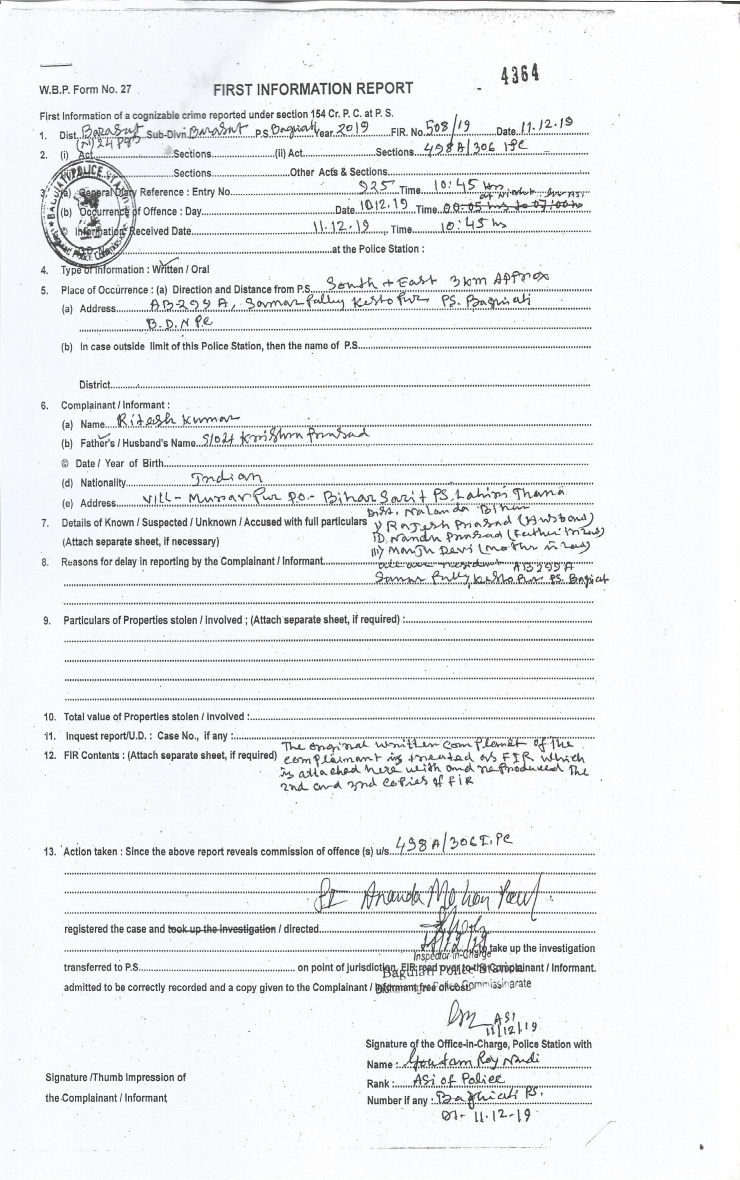 4364
W.B.P. Form No. 27
FIRST INFORMATION REPORT
First Information of a cognizable crime reported under section 154 Cr. P. C. at P. S.
1. Dist. Barasat Sub-Divn Barasat P.S. Baguiati Year 2019 FIR. No. 508/19 Date 11.12.19
(N) 24 Pgs
2. (i) Act Sections (ii) Act Sections 498A/306 IPC
Sections Other Acts & Sections
3. (a) General Diary Reference : Entry No. 925 Time 10:45 hrs
(b) Occurrence of Offence : Day Date 10.12.19 Time 00:05 hrs to 07:00 hrs
© Information Received Date 11.12.19 , Time 10:45 hrs
at the Police Station :
4. Type of Information : Written / Oral
5. Place of Occurrence : (a) Direction and Distance from P.S. South + East 3 km Approx
(a) Address AB-299 A, Samar Pally Kestopur PS. Baguiati
B.D.N PC
(b) In case outside limit of this Police Station, then the name of P.S.
District
6. Complainant / Informant :
(a) Name Ritesh Kumar
(b) Father's / Husband's Name S/o Krishna Prasad
© Date / Year of Birth
(d) Nationality Indian
(e) Address Vill- Mussarpur P.O.- Bihar Sarif PS. Laheri Thana
Dist. Nalanda Bihar
7. Details of Known / Suspected / Unknown / Accused with full particulars I) Rajesh Prasad (Husband)
(Attach separate sheet, if necessary) II) Nandu Prasad (Father in law)
III) Manju Devi (Mother in law)
8. Reasons for delay in reporting by the Complainant / Informant all are resident AB299A
Samar Pally Kestopur PS. Baguiati
9. Particulars of Properties stolen / involved ; (Attach separate sheet, if required) :
10. Total value of Properties stolen / Involved :
11. Inquest report/U.D. : Case No., if any :
12. FIR Contents : (Attach separate sheet, if required) The original written complaint of the
complainant is treated as FIR which
is attached here with and reproduced the
2nd and 3rd copies of FIR
13. Action taken : Since the above report reveals commission of offence (s) u/s. 498A/306 I.PC
SI Ananda Mohan Paul
registered the case and took up the investigation / directed
to take up the investigation
Inspector-in-Charge
transferred to P.S. on point of jurisdiction, FIR read over to the Complainant / Informant.
Baguiati Police Station
admitted to be correctly recorded and a copy given to the Complainant / Informant free of cost.
Commissinarate
ASI
11/12/19
Signature of the Office-in-Charge, Police Station with
Name : Goutam Roy Nandi
Signature /Thumb Impression of
Rank : ASI of Police
the Complainant / Informant
Number if any : Baguiati PS.
DT- 11-12-19